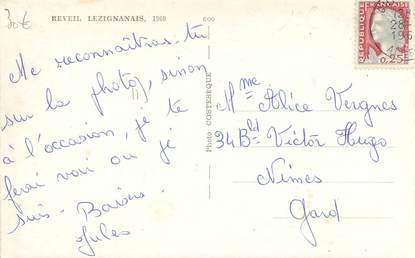 30€
REVEIL LEZIGNANAIS, 1960
600
Me reconnaîtras-tu
sur la photo, sinon
à l'occasion, je te
ferai voir où je
suis. Baisers
Jules
Photo COSTESEQUE
Mme Alice Vergnes
34 Bld Victor Hugo
Nîmes
Gard
REPUBLIQUE FRANÇAISE
0,25
28
196